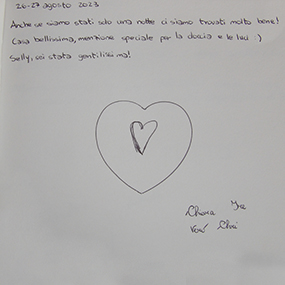 26-27 agosto 2023
Anche se siamo stati solo una notte ci siamo trovati molto bene!
Casa bellissima, menzione speciale per la doccia e le luci :)
Selly, sei stata gentilissima!
Chiara